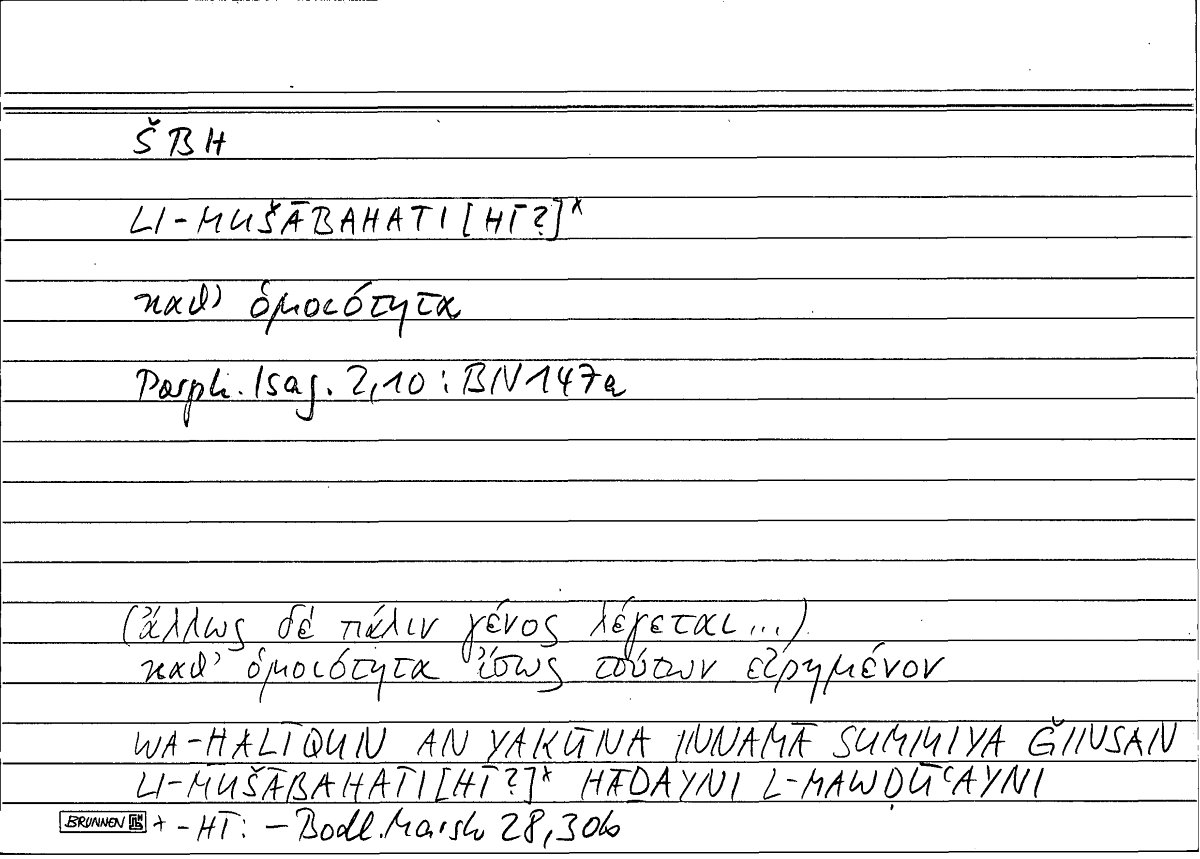 ŠBH
LI-MUŠĀBAHATI[HĪ?]*
καθ' ὁμοιότητα
Porph. Isag. 2,10: BN 147a
(ἄλλως δὲ πάλιν γένος λέγεται...)
καθ' ὁμοιότητα ἴσως τούτων εἰρημένον
WA-HALĪQUN AN YAKŪNA INNAMĀ SUMMIYA ǦINSAN
LI-MUŠĀBAHATI[HĪ?]* HĀḎAYNI L-MAWḌŪʿAYNI
BRUNNEN * -HĪ: - Bodl. Marsh 28,30b